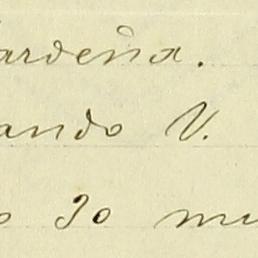 ardeña.
ando V.
o 30 mu